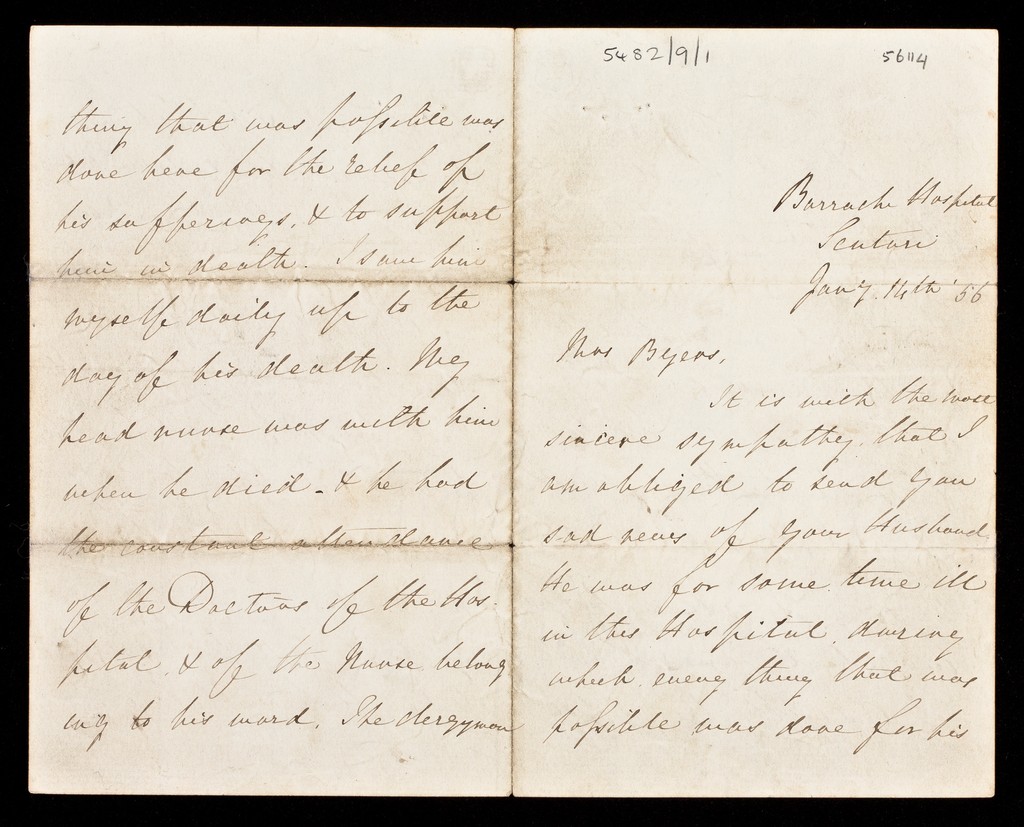 5482/9/1
56114
Barrack Hospital
Scutari
Jany. 14th '56
Mrs Byers,
It is with the most
sincere sympathy that I
am obliged to send you
sad news of your Husband.
He was for some time ill
in this Hospital, during
which every thing that was
possible was done for his
thing that was possible was
done here for the relief of
his sufferings, & to support
him in death. I saw him
myself daily up to the
day of his death. My
head nurse was with him
when he died - & he had
the constant attendance
of the Doctors of the Hos-
pital, & of the Nurse belong
ing to his ward. The clergyman